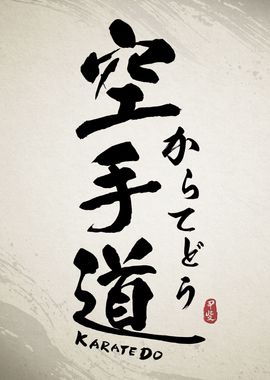 空手道
からてどう
KARATE DO